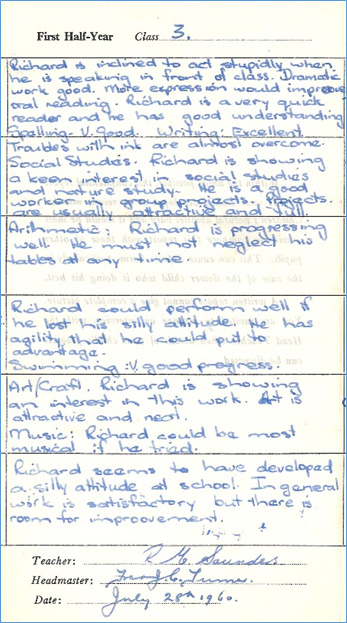 First Half-Year Class 3.
Richard is inclined to act stupidly when
he is speaking in front of class. Dramatic
work good. More expression would improve
oral reading. Richard is a very quick
reader and he has good understanding
Spelling: V. Good. Writing: Excellent
Troubles with ink are almost overcome.
Social Studies. Richard is showing
a keen interest in social studies
and nature study. He is a good
worker in group projects. Projects
are usually attractive and full.
Arithmetic; Richard is progressing
well. He must not neglect his
tables at any time.
Richard could perform well if
he lost his silly attitude. He has
agility that he could put to
advantage.
Swimming: V. good progress.
Art/Craft. Richard is showing
an interest in this work. Art is
attractive and neat.
Music; Richard could be most
musical if he tried.
Richard seems to have developed
a silly attitude at school. In general
work is satisfactory but there is
room for improvement.
Teacher: R. G. Saunders
Headmaster:
Date: July 28th 1960.